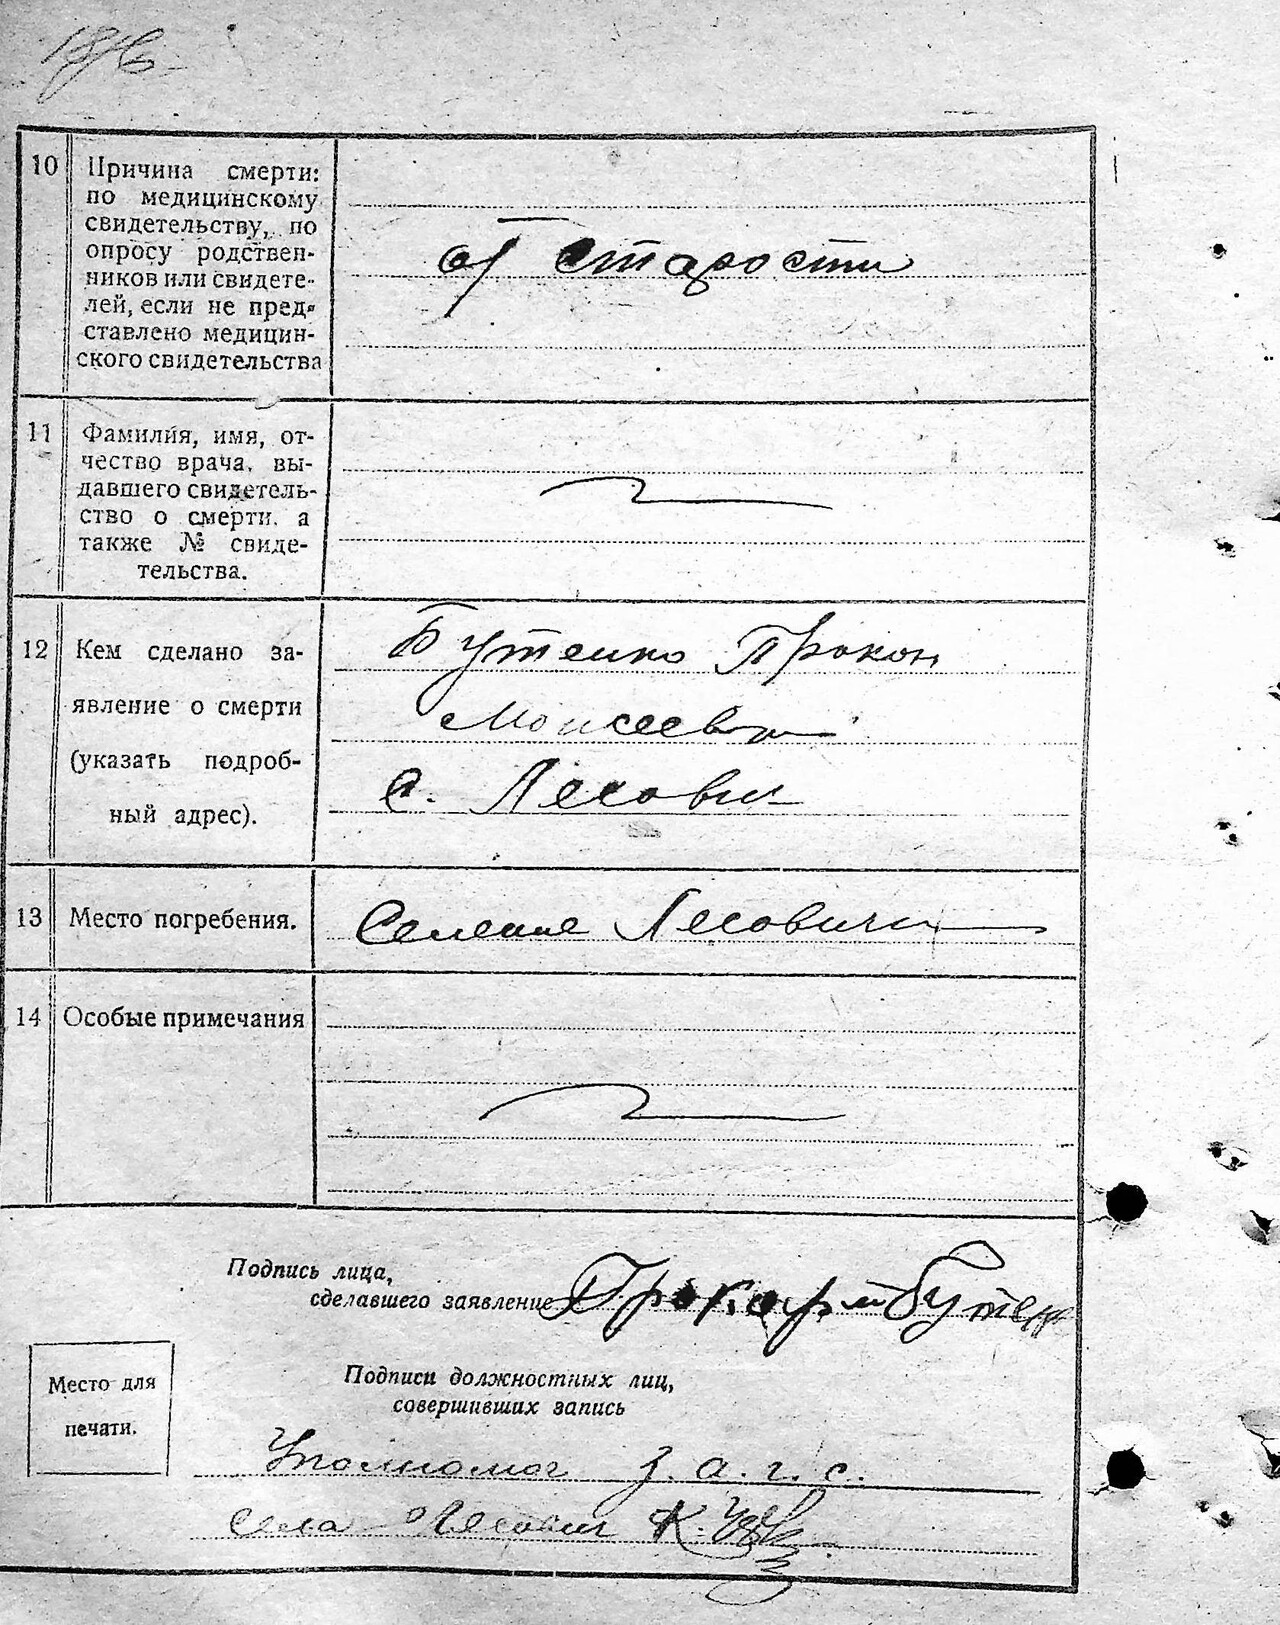 10
Причина смерти:
по медицинскому
свидетельству, по
опросу родствен-
ников или свидете-
лей, если не пред-
ставлено медицин-
ского свидетельства
от старости
11
Фамилия, имя, от-
чество врача, вы-
давшего свидетель-
ство о смерти, а
также № свиде-
тельства.
12
Кем сделано за-
явление о смерти
(указать подроб-
ный адрес).
Бутенко Прокоп
Моисеев
с. Лесович
13
Место погребения.
Селение Лесовичи
14
Особые примечания
Подпись лица,
сделавшего заявление
Бутен
Подписи должностных лиц,
совершивших запись
Место для
печати.
Уполномоч з.а.г.с.
села Лесович К.